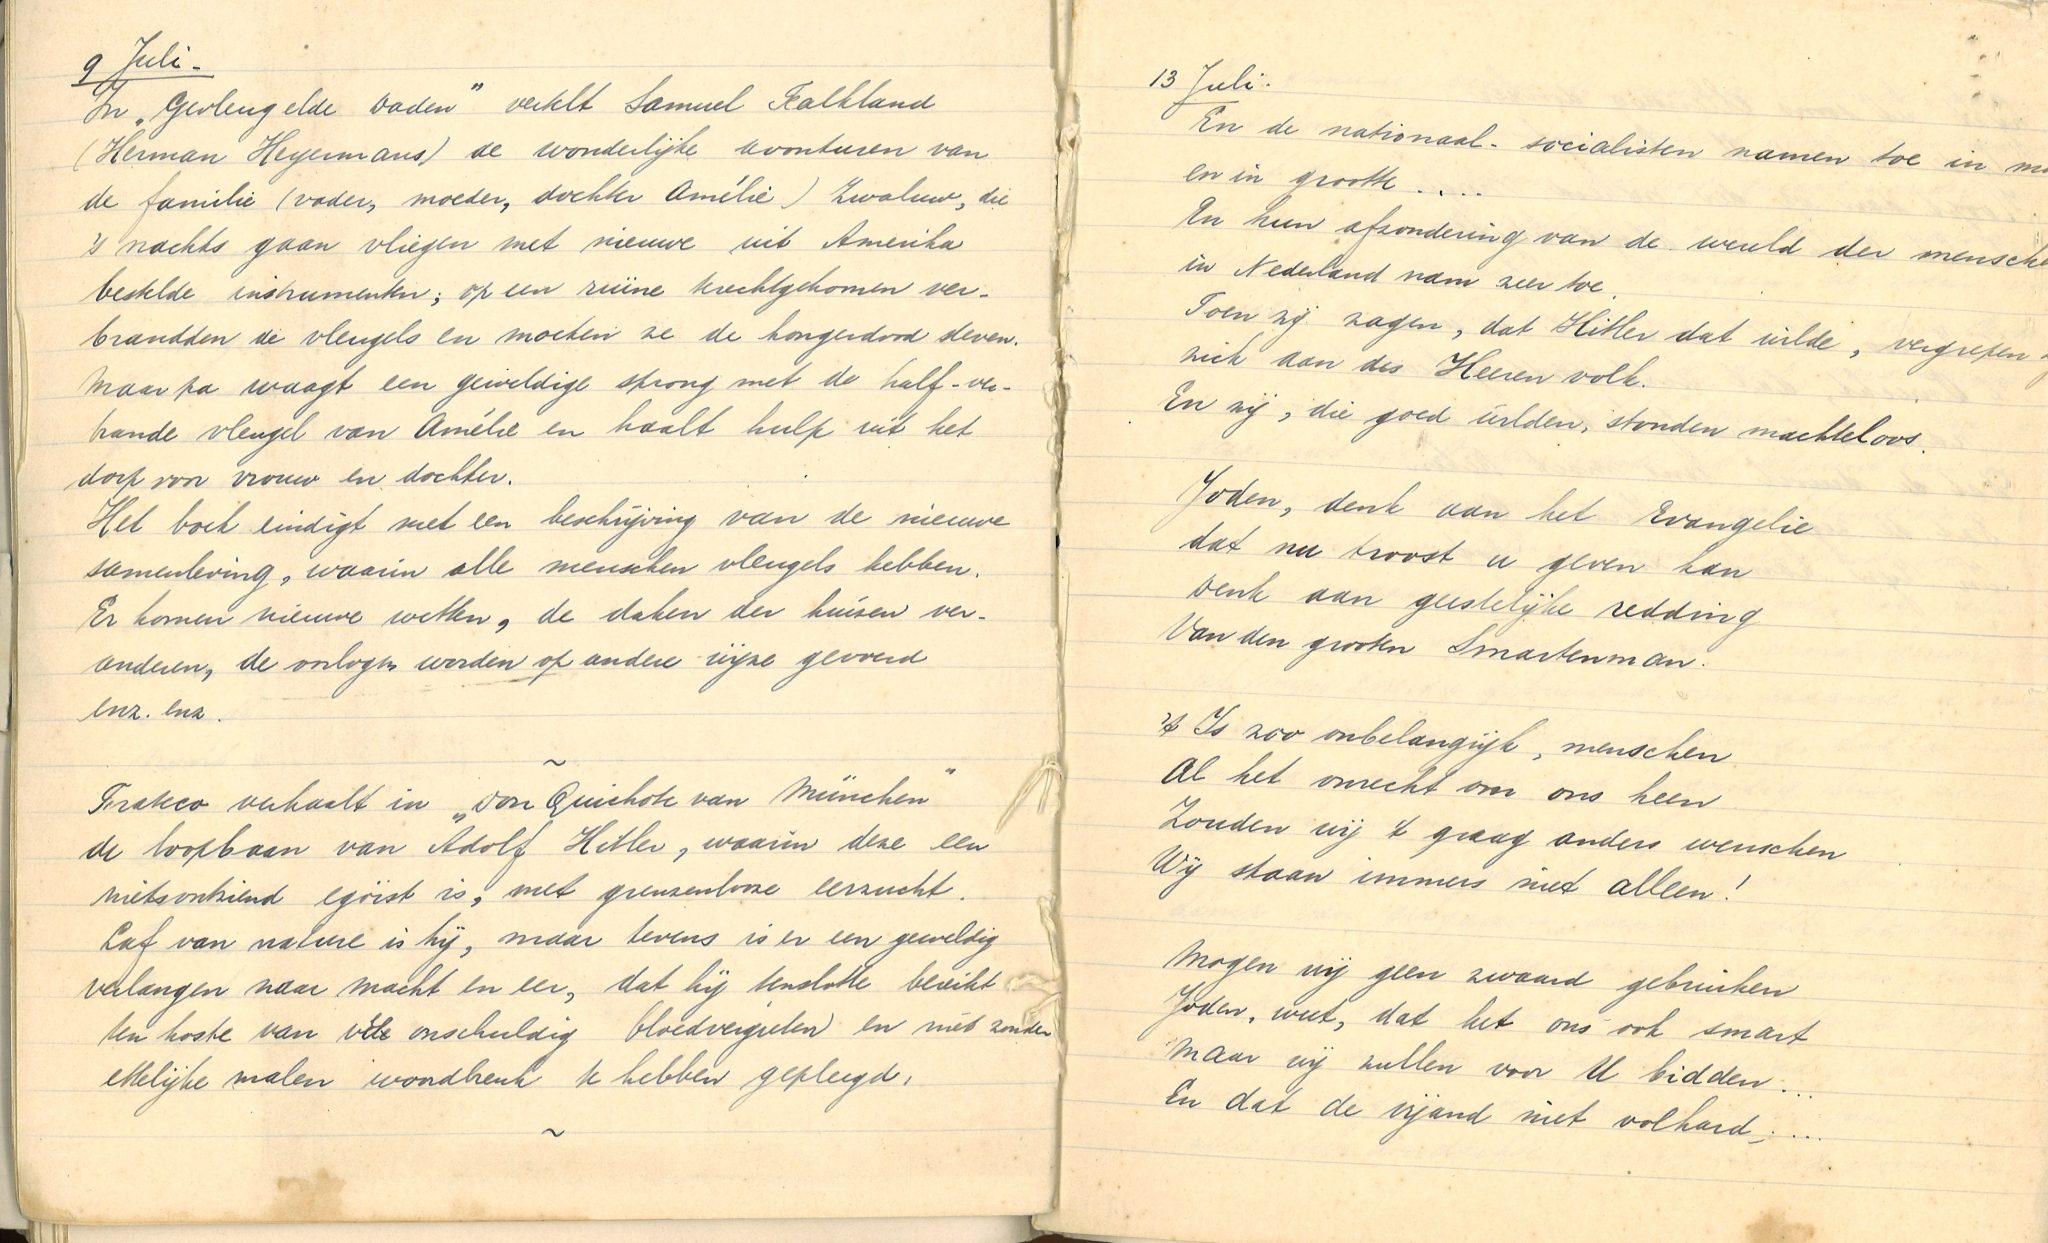 9 Juli -
In „Gevleugelde Daden" vertelt Samuel Falkland
(Herman Heyermans) de wonderlijke avonturen van
de familie (vader, moeder, dochter Amélie) Zwaluw, die
's nachts gaan vliegen met nieuwe uit Amerika
bestelde instrumenten; op een ruïne terechtgekomen ver-
brandden de vleugels en moeten ze de hongerdood sterven.
Maar pa waagt een geweldige sprong met de half-ver-
brande vleugel van Amélie en haalt hulp uit het
dorp voor vrouw en dochter.
Het boek eindigt met een beschrijving van de nieuwe
samenleving, waarin alle menschen vleugels hebben.
Er komen nieuwe wetten, de daken der huizen ver-
anderen, de oorlogen worden op andere wijze gevoerd
enz. enz.
~
Frateco verhaalt in „Don Quichote van München"
de loopbaan van Adolf Hitler, waarin deze een
nietsontziend egoïst is, met grenzenlooze eerzucht.
Laf van nature is hij, maar tevens is er een geweldig
verlangen naar macht en eer, dat hij tenslotte bereikt
ten koste van vele onschuldig bloedvergieten en niet zonder
ettelijke malen woordbreuk te hebben gepleegd.
~
13 Juli.
En de nationaal-socialisten namen toe in
en in grootte ....
En hun afzondering van de wereld der mensche
in Nederland nam zeer toe.
Toen zij zagen, dat Hitler dat wilde, vergrepen
zich aan des Heeren volk.
En zij, die goed wilden, stonden machteloos.
Joden, denk aan het Evangelie
dat nu troost u geven kan
Denk aan geestelijke redding
Van den grooten Smartenman.
't Is zoo onbelangrijk, menschen
Al het onrecht om ons heen
Zouden wij 't graag anders wenschen
Wij staan immers niet alleen!
Mogen wij geen zwaard gebruiken
Joden, weet, dat het ons ook smart
Maar wij zullen voor U bidden ...
En dat de vijand niet volhard ....